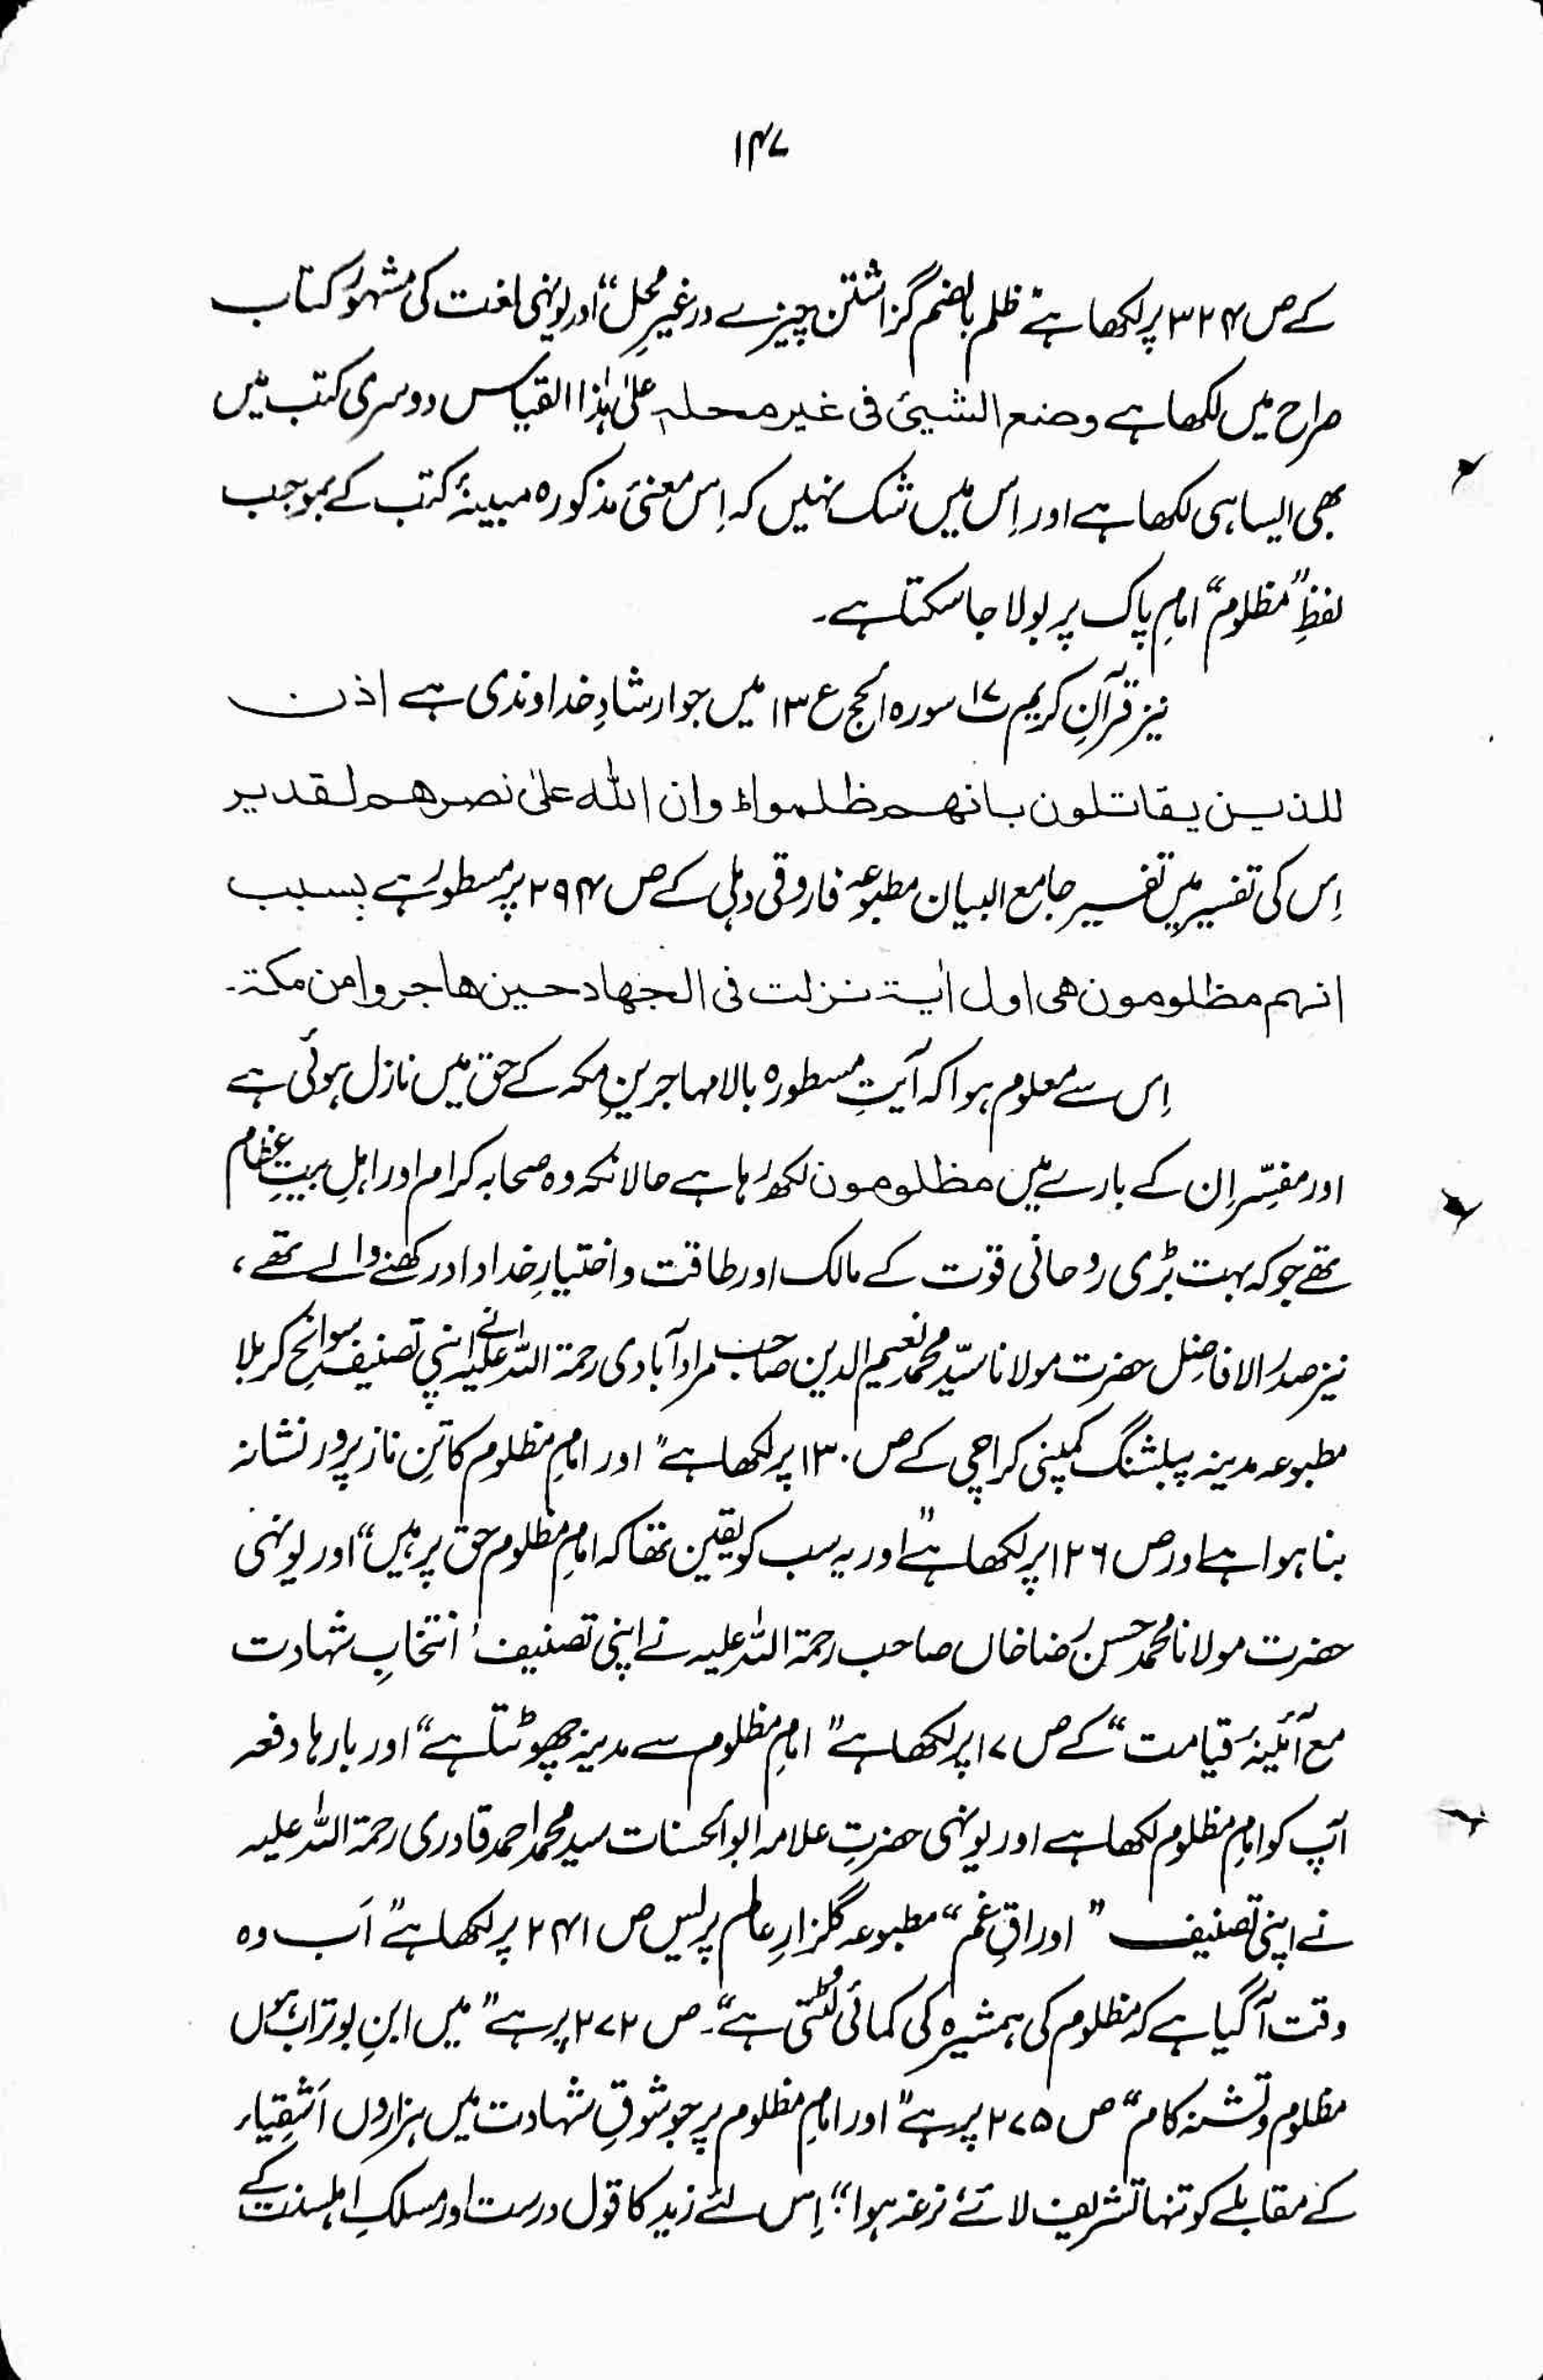 ۱۴۷
کے ص ۳۲۴ پر لکھا ہے "ظلم بالضم گزاشتن چیزے در غیرِ محلِ" اور یونہی لغت کی مشہور کتاب
صراح میں لکھا ہے وضع الشیئ فی غیر محلہ علیٰ ہٰذا القیاس دوسری کتب میں
بھی ایسا ہی لکھا ہے اور اِس میں شک نہیں کہ اِس معنیٔ مذکورہ مبینۂ کتب کے بموجب
لفظِ "مظلوم" امامِ پاک پر بولا جا سکتا ہے۔
نیز قرآنِ کریم پ ۱۷ سورہ الحج ع ۱۳ میں جو ارشادِ خداوندی ہے اذن
للذین یقاتلون بانھم ظلموا ط وان اللہ علیٰ نصرھم لقدیر
اِس کی تفسیر میں تفسیر جامع البیان مطبوعہ فاروقی دہلی کے ص ۲۹۴ پر مسطور ہے بسبب
انہم مظلومون ھی اول اٰیۃ نزلت فی الجھاد حین ھاجروا من مکۃ۔
اِس سے معلوم ہوا کہ آیتِ مسطورہ بالا مہاجرینِ مکہ کے حق میں نازل ہوئی ہے
اور مفسِّر اِن کے بارے میں مظلومون لکھ رہا ہے حالانکہ وہ صحابہ کرام اور اہلِ بیتِ عظام
تھے جو کہ بہت بڑی روحانی قوت کے مالک اور طاقت و اختیارِ خداداد رکھنے والے تھے،
نیز صدرُ الافاضِل حضرت مولانا سیّد محمد نعیم الدین صاحب مرادآبادی رحمۃ اللہ علیہ نے اپنی تصنیف سوانحِ کربلا
مطبوعہ مدینہ پبلشنگ کمپنی کراچی کے ص ۱۳۰ پر لکھا ہے" اور امامِ مظلوم کا تنِ ناز پرور نشانہ
بنا ہوا ہے اور ص ۱۲۶ پر لکھا ہے "اور یہ سب کو یقین تھا کہ امامِ مظلوم حق پر ہیں" اور یونہی
حضرت مولانا محمد حسن رضا خاں صاحب رحمۃ اللہ علیہ نے اپنی تصنیف "انتخابِ شہادت
مع آئینۂ قیامت" کے ص ۱۷ پر لکھا ہے" امامِ مظلوم سے مدینہ چھوٹتا ہے" اور بارہا دفعہ
آپ کو امامِ مظلوم لکھا ہے اور یونہی حضرتِ علامہ ابوالحسنات سید محمد احمد قادری رحمۃ اللہ علیہ
نے اپنی تصنیف " اوراقِ غم" مطبوعہ گلزارِ عالم پریس ص ۲۴۱ پر لکھا ہے" اَب وہ
وقت آ گیا ہے کہ مظلوم کی ہمشیرہ کی کمائی لُٹتی ہے"۔ ص ۲۷۲ پر ہے" میں ابنِ بوتراب ہوں
مظلوم و تشنہ کام" ص ۲۷۵ پر ہے" اور امامِ مظلوم پر جو شوقِ شہادت میں ہزاروں اَشقِیاء
کے مقابلے کو تنہا تشریف لائے نرغہ ہوا"؛ اِس لئے زید کا قول درست اور مسلکِ اہلسنت کے